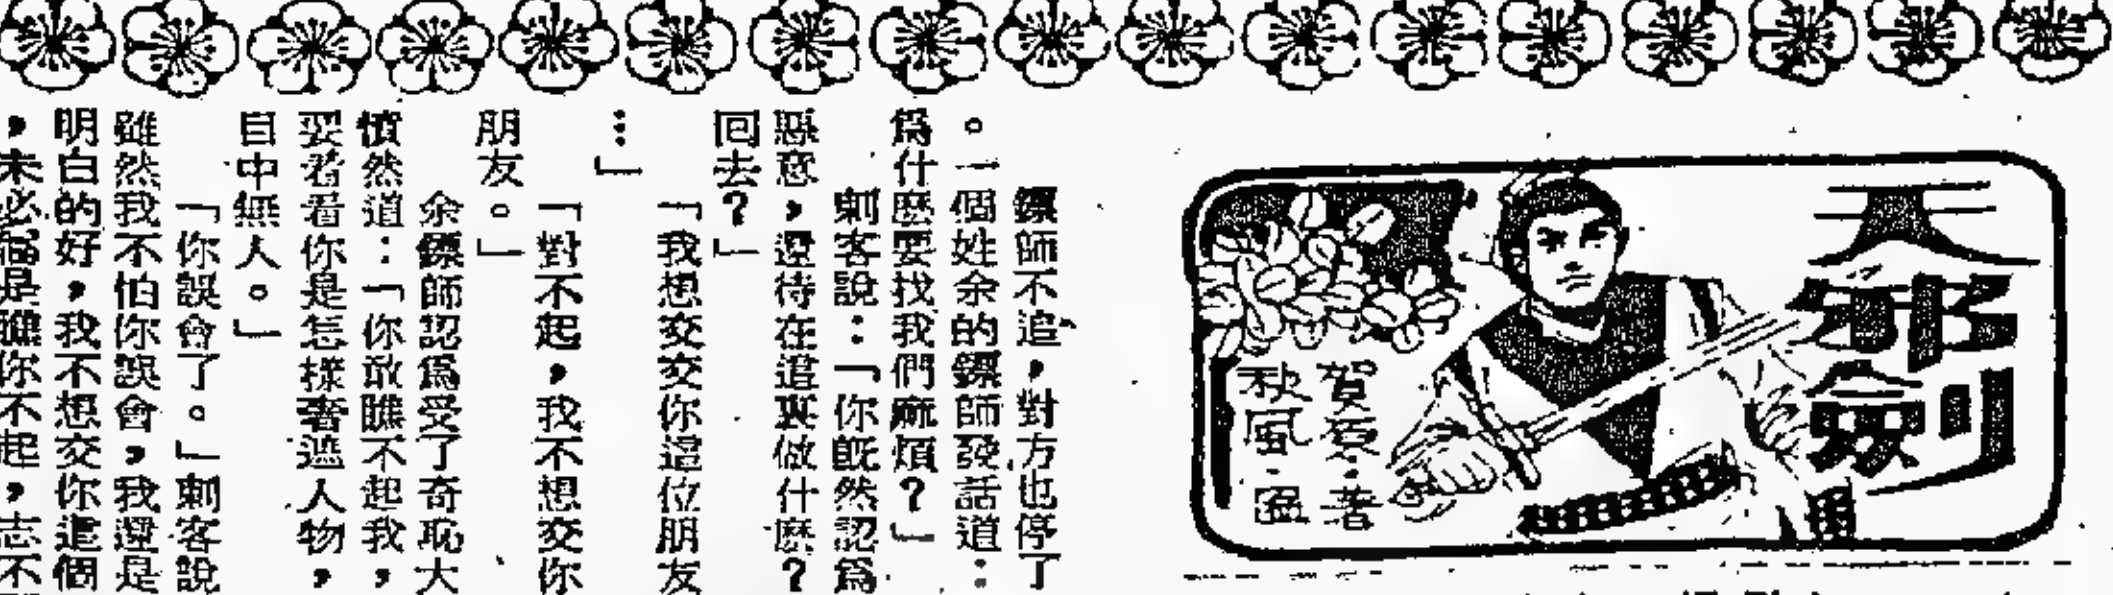 天邪劍
賀原·著
秋風·圖
鏢師不追,對方也停了
。一個姓余的鏢師發話道:
為什麼要找我們麻煩?」
刺客說:「你既然認為
惡意,還待在這裏做什麼?
回去?」
「我想交交你這位朋友
…」
「對不起,我不想交你
朋友。」
余鏢師認為受了奇恥大
憤然道:「你敢瞧不起我,
要看看你是怎樣奢遮人物,
目中無人。」
「你誤會了。」刺客說
雖然我不怕你誤會,我還是
明白的好,我不想交你這個
,未必是瞧你不起,志不